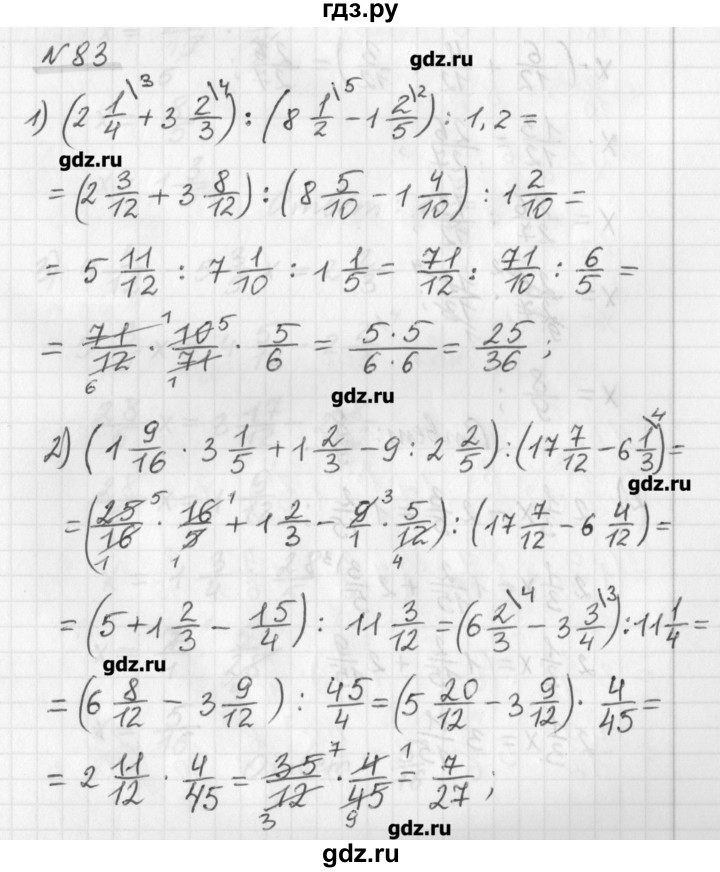 гдз.ру
№ 83
gdz.ru
1) (2 1/4 \3 + 3 2/3 \4) : (8 1/2 \5 − 1 2/5 \2) : 1,2 =
gdz.ru
= (2 3/12 + 3 8/12) : (8 5/10 − 1 4/10) : 1 2/10 =
= 5 11/12 : 7 1/10 : 1 1/5 = 71/12 : 71/10 : 6/5 =
= 71/12 6 · 1 10/71 5 1 · 5/6 = 5·5/6·6 = 25/36 ;
gdz.ru
2) (1 9/16 · 3 1/5 + 1 2/3 − 9 : 2 2/5) : (17 7/12 − 6 1/3 \4) =
gdz.ru
= (25/16 5 1 · 16/5 1 1 + 1 2/3 − 9/1 3 · 5/12 4) : (17 7/12 − 6 4/12) =
= (5 + 1 2/3 − 15/4) : 11 3/12 = (6 2/3 \4 − 3 3/4 \3) : 11 1/4 =
gdz.ru
= (6 8/12 − 3 9/12) : 45/4 = (5 20/12 − 3 9/12) · 4/45 =
= 2 11/12 · 4/45 = 35/12 7 3 · 4/45 1 9 = 7/27 ;
gdz.ru
gdz.ru